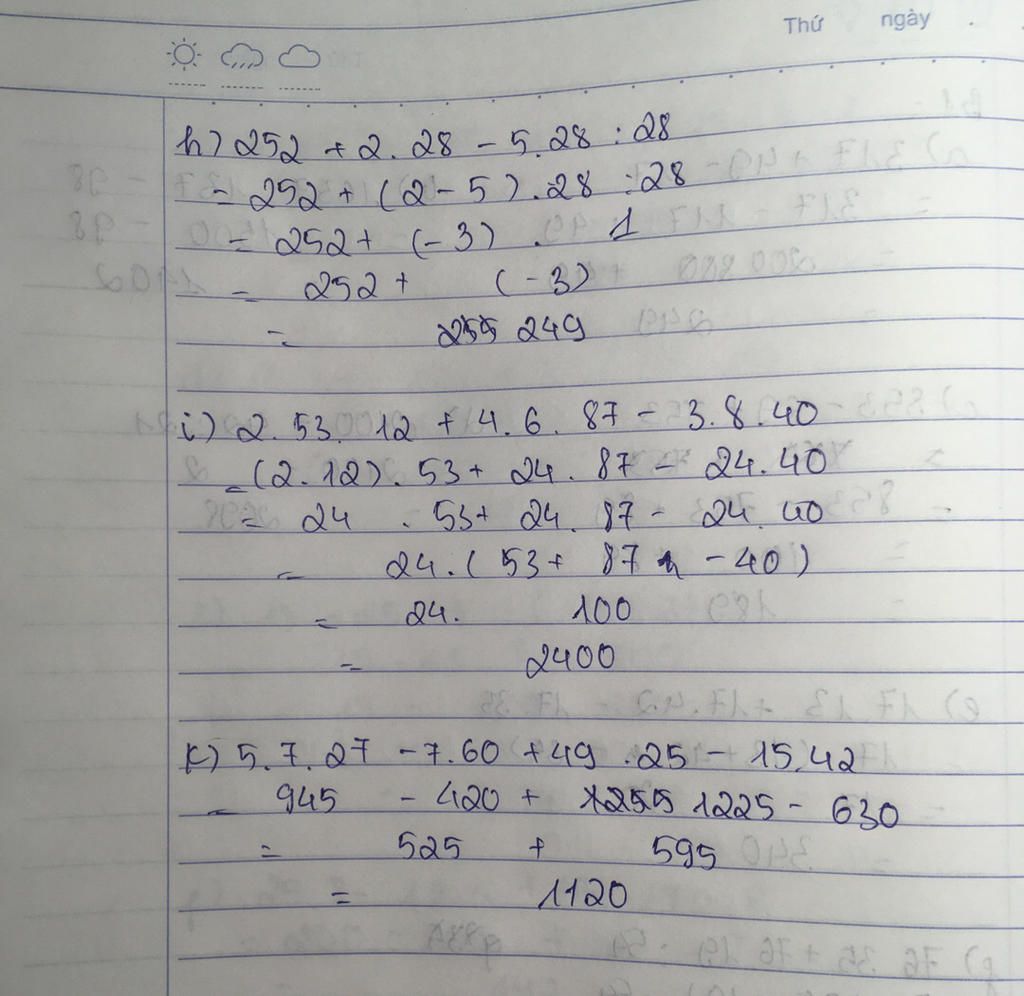 Thứ ngày .
h) 252 + 2. 28 - 5. 28 : 28
= 252 + (2 - 5) . 28 : 28
= 252 + (-3) . 1
= 252 + (-3)
= 249
i) 2. 53. 12 + 4. 6. 87 - 3. 8. 40
= (2. 12). 53 + 24. 87 - 24. 40
= 24 . 53 + 24. 87 - 24. 40
= 24. ( 53 + 87 - 40 )
= 24. 100
= 2400
k) 5. 7. 27 - 7. 60 + 49 . 25 - 15. 42
= 945 - 420 + 1225 - 630
= 525 + 595
= 1120